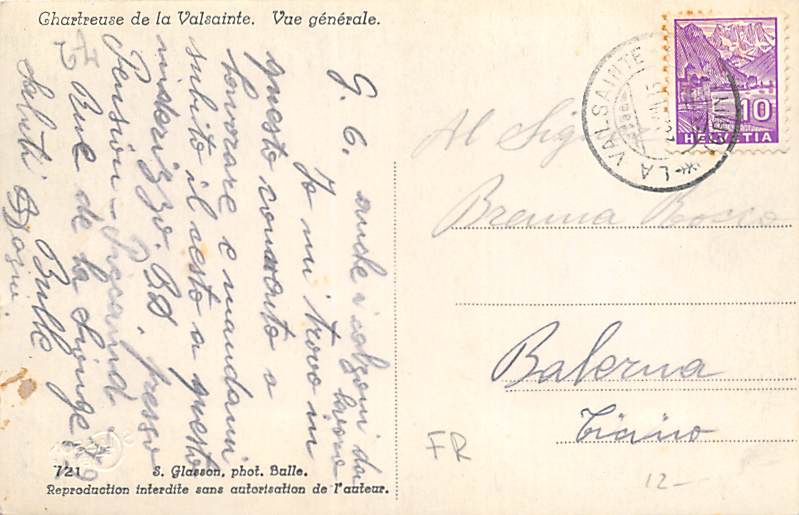 Chartreuse de la Valsainte. Vue générale.
G. C.
Io mi trovo in
questo convento a
lavorare e mandami
subito il resto a questo
indirizzo.
presso
Pension
Rue de la
Bulle
Saluti
anche i calzoni da lavoro
721
S. Glasson, phot. Bulle.
Reproduction interdite sans autorisation de l'auteur.
LA VALSAINTE
10
HELVETIA
Al Sig
Brenna Rocco
Balerna
Ticino
FR
12-